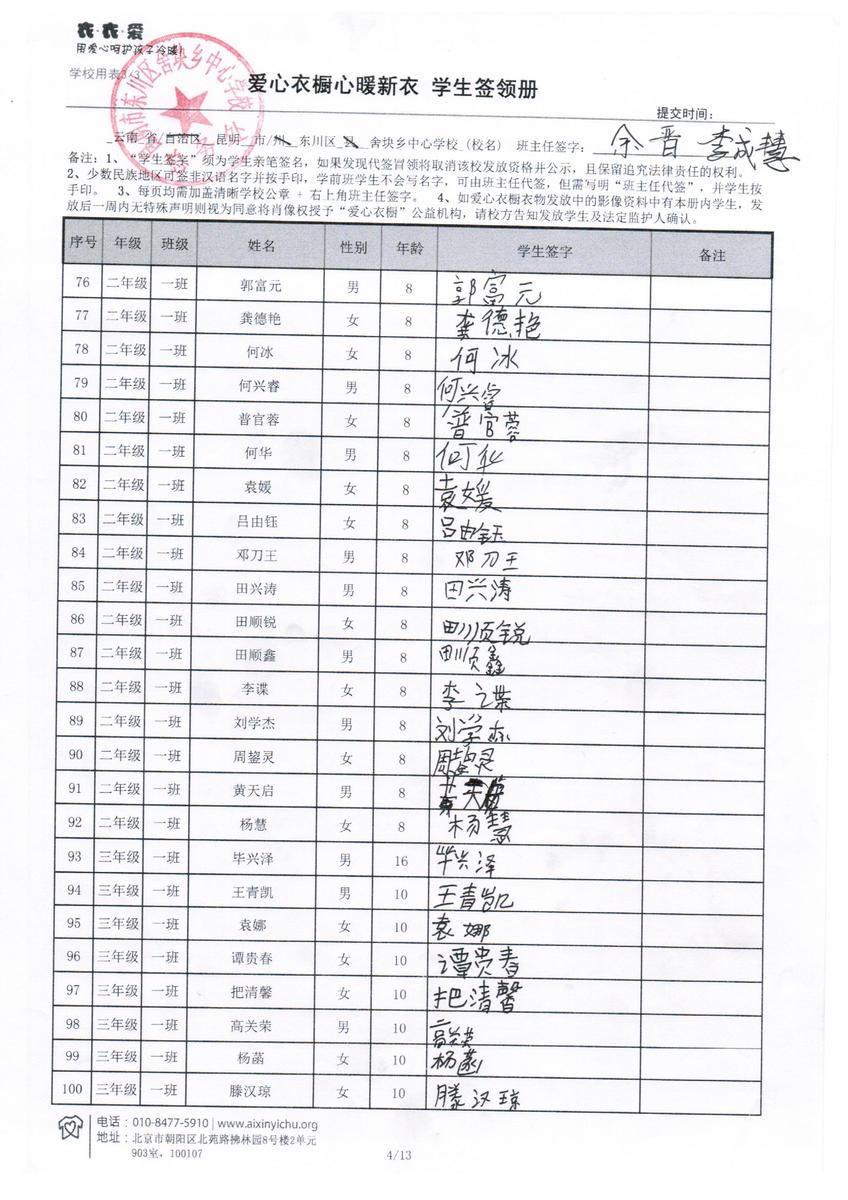 衣·衣·爱
用爱心呵护孩子冷暖!
学校用表3/3
爱心衣橱心暖新衣 学生签领册
提交时间:
云南 省/自治区 昆明 市/州 东川区 县 舍块乡中心学校(校名) 班主任签字: 余晋 李成慧
备注:1、“学生签字”须为学生亲笔签名,如果发现代签冒领将取消该校发放资格并公示,且保留追究法律责任的权利。
2、少数民族地区可签非汉语名字并按手印,学前班学生不会写名字,可由班主任代签,但需写明“班主任代签”,并学生按
手印。 3、每页均需加盖清晰学校公章 + 右上角班主任签字。 4、如爱心衣橱衣物发放中的影像资料中有本册内学生,发
放后一周内无特殊声明则视为同意将肖像权授予“爱心衣橱”公益机构,请校方告知发放学生及法定监护人确认。
序号 年级 班级 姓名 性别 年龄 学生签字 备注
76 二年级 一班 郭富元 男 8 郭富元
77 二年级 一班 龚德艳 女 8 龚德艳
78 二年级 一班 何冰 女 8 何冰
79 二年级 一班 何兴睿 男 8 何兴睿
80 二年级 一班 普官蓉 女 8 普官蓉
81 二年级 一班 何华 男 8 何华
82 二年级 一班 袁媛 女 8 袁媛
83 二年级 一班 吕由钰 女 8 吕由钰
84 二年级 一班 邓刀王 男 8 邓刀王
85 二年级 一班 田兴涛 男 8 田兴涛
86 二年级 一班 田顺锐 女 8 田顺锐
87 二年级 一班 田顺鑫 男 8 田顺鑫
88 二年级 一班 李谍 女 8 李谍
89 二年级 一班 刘学杰 男 8 刘学杰
90 二年级 一班 周鋆灵 女 8 周鋆灵
91 二年级 一班 黄天启 男 8
92 二年级 一班 杨慧 女 8 杨慧
93 三年级 一班 毕兴泽 男 16 毕兴泽
94 三年级 一班 王青凯 男 10 王青凯
95 三年级 一班 袁娜 女 10 袁娜
96 三年级 一班 谭贵春 女 10 谭贵春
97 三年级 一班 把清馨 女 10 把清馨
98 三年级 一班 高关荣 男 10 高关荣
99 三年级 一班 杨菡 女 10 杨菡
100 三年级 一班 滕汉琼 女 10 滕汉琼
电话:010-8477-5910 | www.aixinyichu.org
地址:北京市朝阳区北苑路拂林园8号楼2单元
903室,100107
4/13